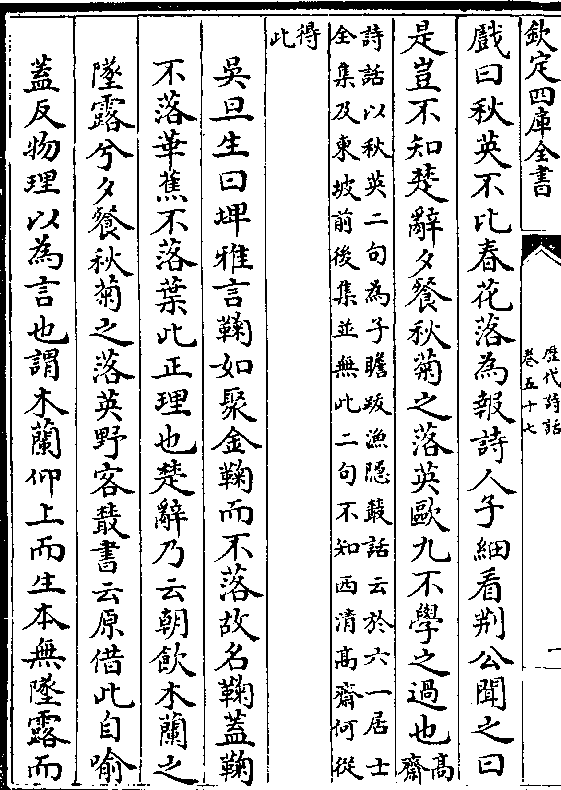 欽定四庫全書
厯代詩話
卷五十七
一
戲曰秋英不比春花落為報詩人子細看荆公聞之曰
是豈不知楚辭夕餐秋菊之落英歐九不學之過也髙齋
詩話以秋英二句為子瞻跋漁隠叢話云於六一居士
全集及東坡前後集並無此二句不知西清髙齋何從
得此
吳旦生曰埤雅言鞠如聚金鞠而不落故名鞠蓋鞠
不落華蕉不落葉此正理也楚辭乃云朝飲木蘭之
墜露兮夕餐秋菊之落英野客叢書云原借此自喻
蓋反物理以為言也謂木蘭仰上而生本無墜露而